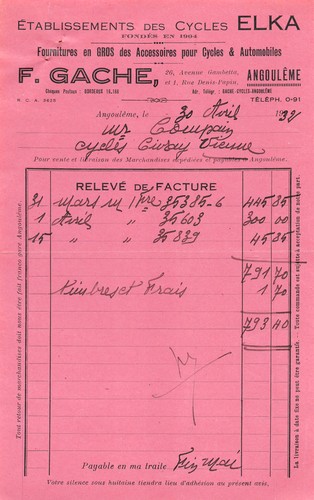 ÉTABLISSEMENTS DES CYCLES ELKA
FONDÉS EN 1904
Fournitures en GROS des Accessoires pour Cycles & Automobiles
F. GACHE,
26, Avenue Gambetta,
et 1, Rue Denis-Papin,
ANGOULÊME
Chèques Postaux : BORDEAUX
Adr. Télégr. : GACHE-CYCLES-ANGOULÊME
R. C. A.
TÉLÉPH. 0-91
Angoulême, le 30 Avril 1932
Mr Coupain
cycles Civray Vienne
Pour vente et livraison des Marchandises expédiées et payables à Angoulême.
RELEVÉ DE FACTURE
31 Mars M/ 35385-6 445 85
1 Avril " 35603 300 00
15 " " 35839 45 85
791 70
Timbres et Frais 1 70
793 40
Payable en ma traite Fin Mai
Votre silence sous huitaine tiendra lieu d'adhésion au présent avis.
Tout retour de marchandises doit nous être fait franco gare Angoulême.
La livraison à date fixe ne peut être garantie. - Toute commande est sujette à acceptation de notre part.